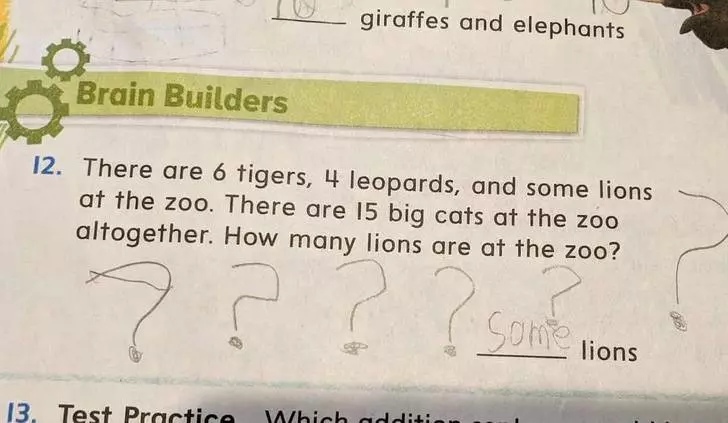 giraffes and elephants
Brain Builders
12. There are 6 tigers, 4 leopards, and some lions
at the zoo. There are 15 big cats at the zoo
altogether. How many lions are at the zoo?
? ? ? ? ? ?
Some lions
13. Test Practice Which addition